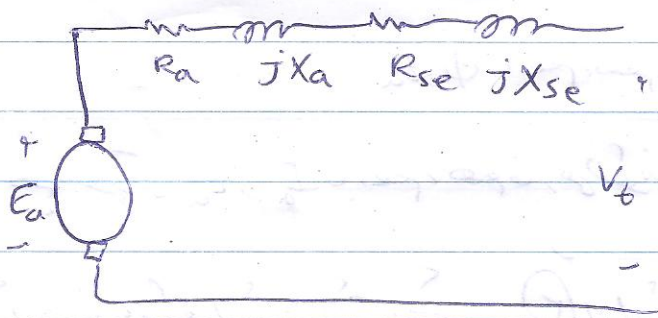 Ra jXa Rse jXse +
+
Ea
Vt
-
-